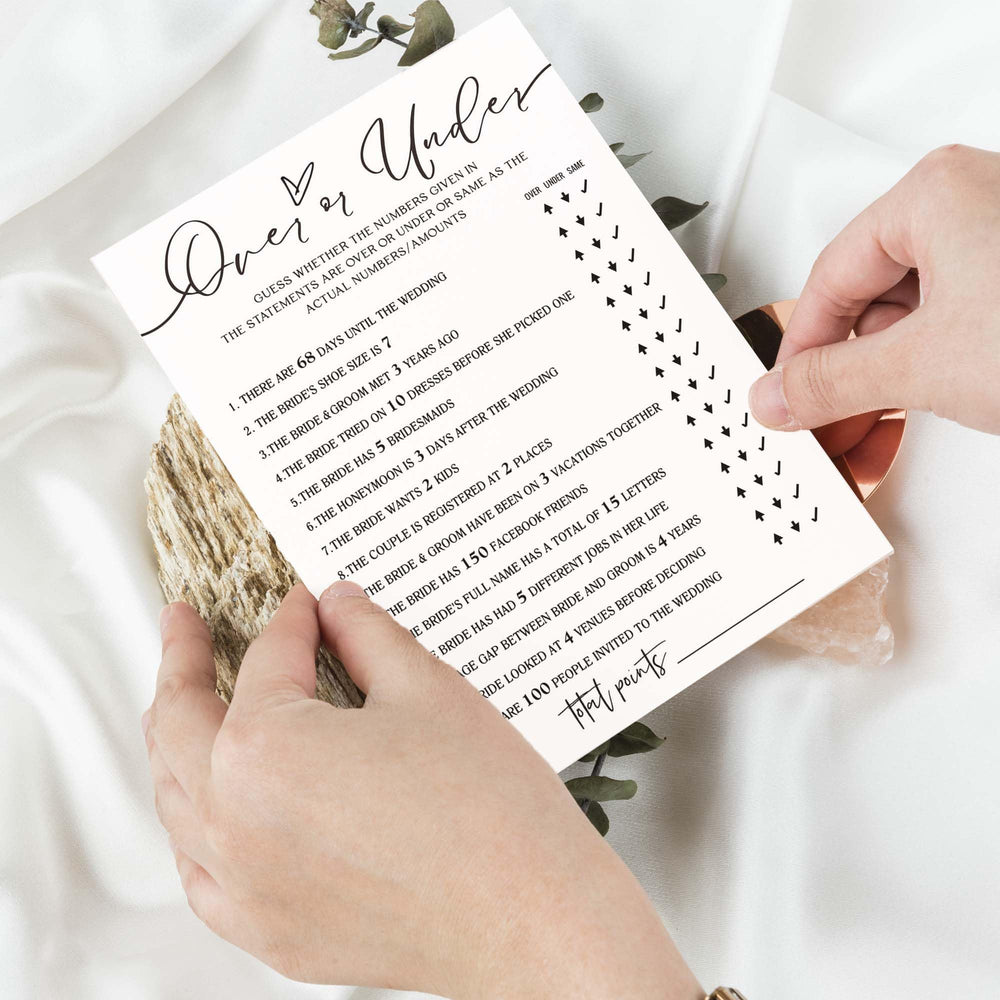 Over or Under
GUESS WHETHER THE NUMBERS GIVEN IN
THE STATEMENTS ARE OVER OR UNDER OR SAME AS THE
ACTUAL NUMBERS/AMOUNTS
OVER UNDER SAME
1. THERE ARE 68 DAYS UNTIL THE WEDDING
2. THE BRIDE'S SHOE SIZE IS 7
3.THE BRIDE &GROOM MET 3 YEARS AGO
4.THE BRIDE TRIED ON 10 DRESSES BEFORE SHE PICKED ONE
5.THE BRIDE HAS 5 BRIDESMAIDS
6.THE HONEYMOON IS 3 DAYS AFTER THE WEDDING
7.THE BRIDE WANTS 2 KIDS
8.THE COUPLE IS REGISTERED AT 2 PLACES
THE BRIDE & GROOM HAVE BEEN ON 3 VACATIONS TOGETHER
THE BRIDE HAS 150 FACEBOOK FRIENDS
BRIDE'S FULL NAME HAS A TOTAL OF 15 LETTERS
BRIDE HAS HAD 5 DIFFERENT JOBS IN HER LIFE
GAP BETWEEN BRIDE AND GROOM IS 4 YEARS
LOOKED AT 4 VENUES BEFORE DECIDING
ARE 100 PEOPLE INVITED TO THE WEDDING
total points